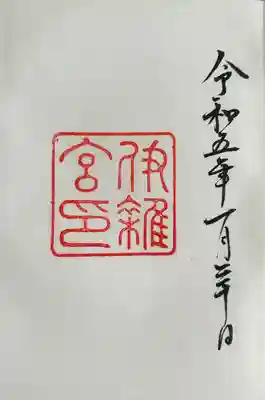 令和五年一月二十日
伊雜
宮印